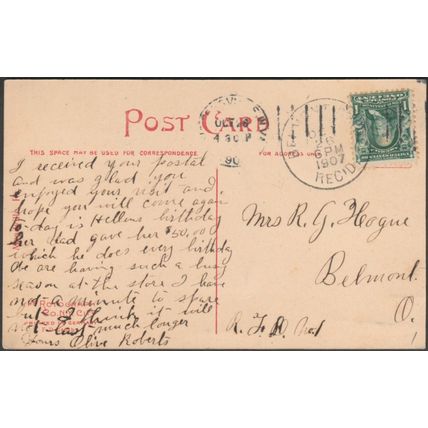 POST CARD
THIS SPACE MAY BE USED FOR CORRESPONDENCE
FOR ADDRESS
OCT 26
4 30 P
190
6 PM
1907
REC'D.
1
I received your postal
and was glad you
enjoyed your visit and
hope you will come again
to-day is Hellens birthday
her dad gave her $50.00
which he does every birthday
We are having such a busy
season at the store I have
not a minute to spare
but I think it will
not last much longer
Yours Olive Roberts
Mrs R. G. Hogue
Belmont
O.
R. F. D. No1